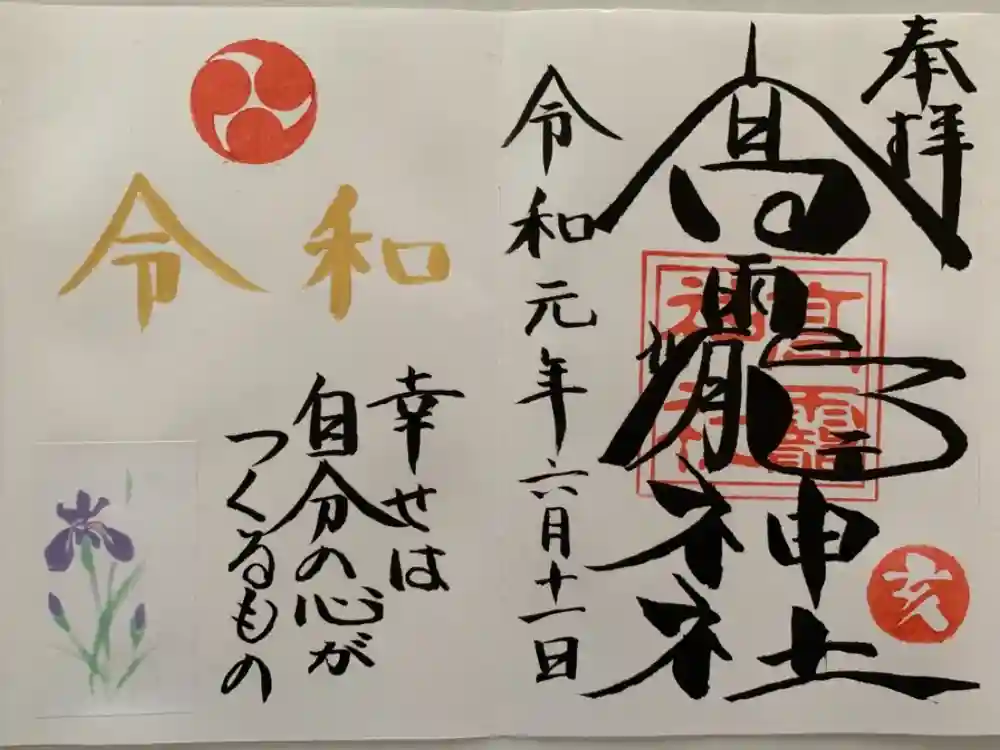 奉拝
高龗神社
高龗
神社
亥
令和元年六月十一日
令和
幸せは
自分の心が
つくるもの